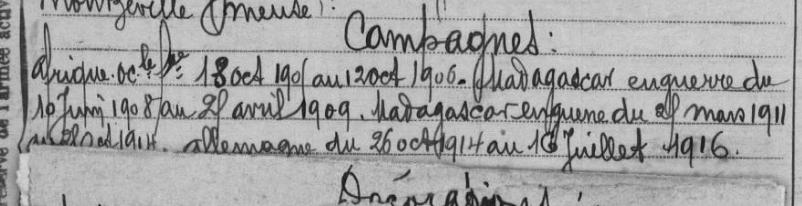 (Meuse).
Campagnes:
Afrique occ.le fse 18 oct 190 au 12 oct 1906. Madagascar en guerre du
10 Juin 1908 au avril 1909. Madagascar en guerre du mars 1911
au 1914. Allemagne du 26 oct 1914 au Juillet 1916.
Décorations: